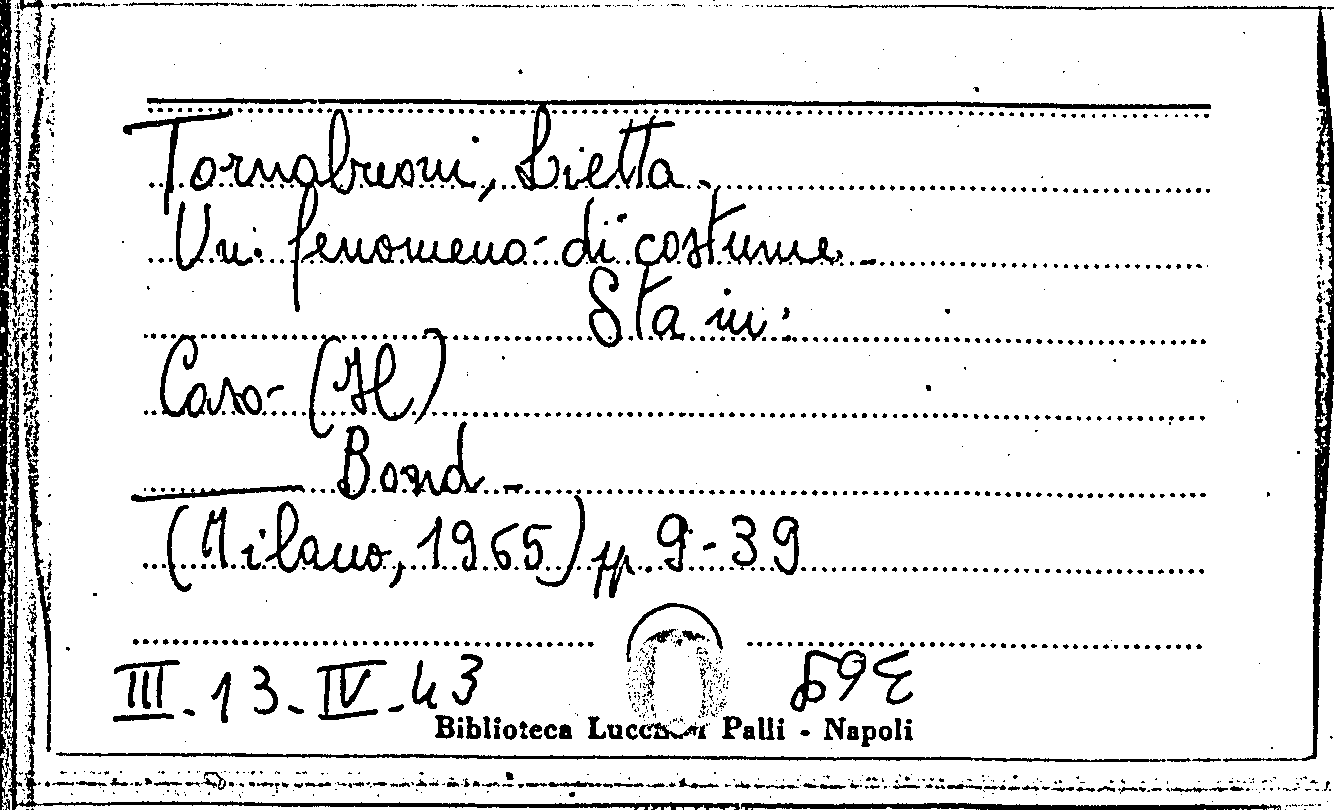 Tornabuoni, Lietta.
Un fenomeno di costume. -
Sta in:
Caso (Il)
Bond -
(Milano, 1965) pp. 9-39
III - 13 - IV - 43
Biblioteca Lucchesi Palli - Napoli